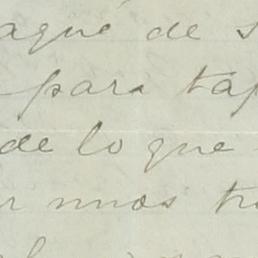 aqué de s
para tap
de lo que
r unos tr